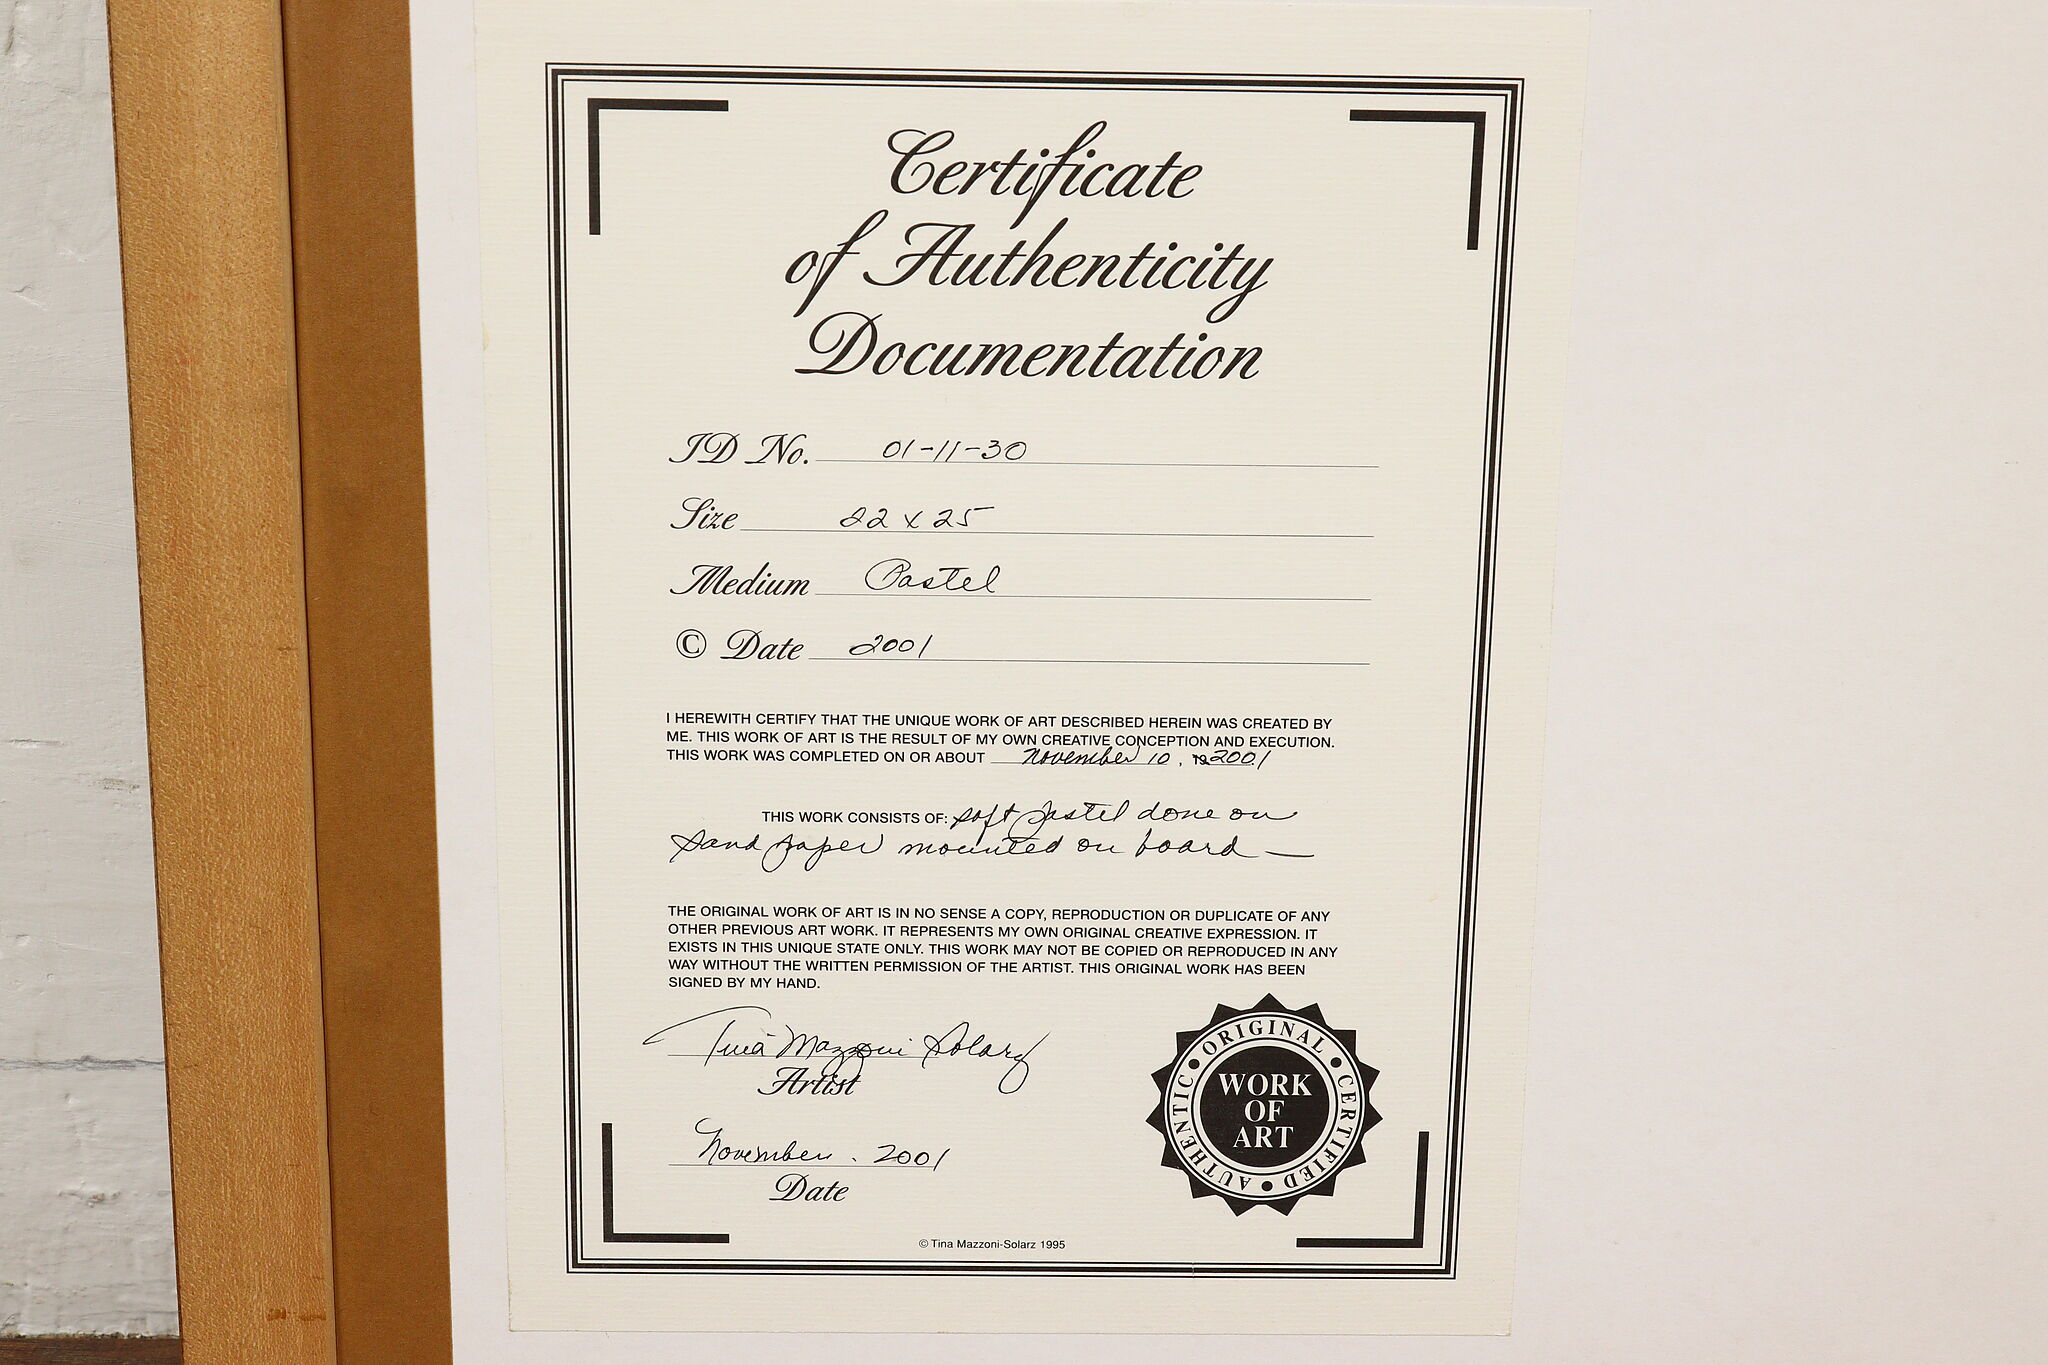 Certificate
of Authenticity
Documentation
ID No. 01-11-30
Size 22 x 25
Medium Pastel
© Date 2001
I HEREWITH CERTIFY THAT THE UNIQUE WORK OF ART DESCRIBED HEREIN WAS CREATED BY
ME. THIS WORK OF ART IS THE RESULT OF MY OWN CREATIVE CONCEPTION AND EXECUTION.
THIS WORK WAS COMPLETED ON OR ABOUT November 10, 2001
THIS WORK CONSISTS OF: soft pastel done on
sand paper mounted on board —
THE ORIGINAL WORK OF ART IS IN NO SENSE A COPY, REPRODUCTION OR DUPLICATE OF ANY
OTHER PREVIOUS ART WORK. IT REPRESENTS MY OWN ORIGINAL CREATIVE EXPRESSION. IT
EXISTS IN THIS UNIQUE STATE ONLY. THIS WORK MAY NOT BE COPIED OR REPRODUCED IN ANY
WAY WITHOUT THE WRITTEN PERMISSION OF THE ARTIST. THIS ORIGINAL WORK HAS BEEN
SIGNED BY MY HAND.
Tina Mazzoni Solarz
Artist
November. 2001
Date
AUTHENTIC • ORIGINAL • CERTIFIED •
WORK
OF
ART
© Tina Mazzoni-Solarz 1995